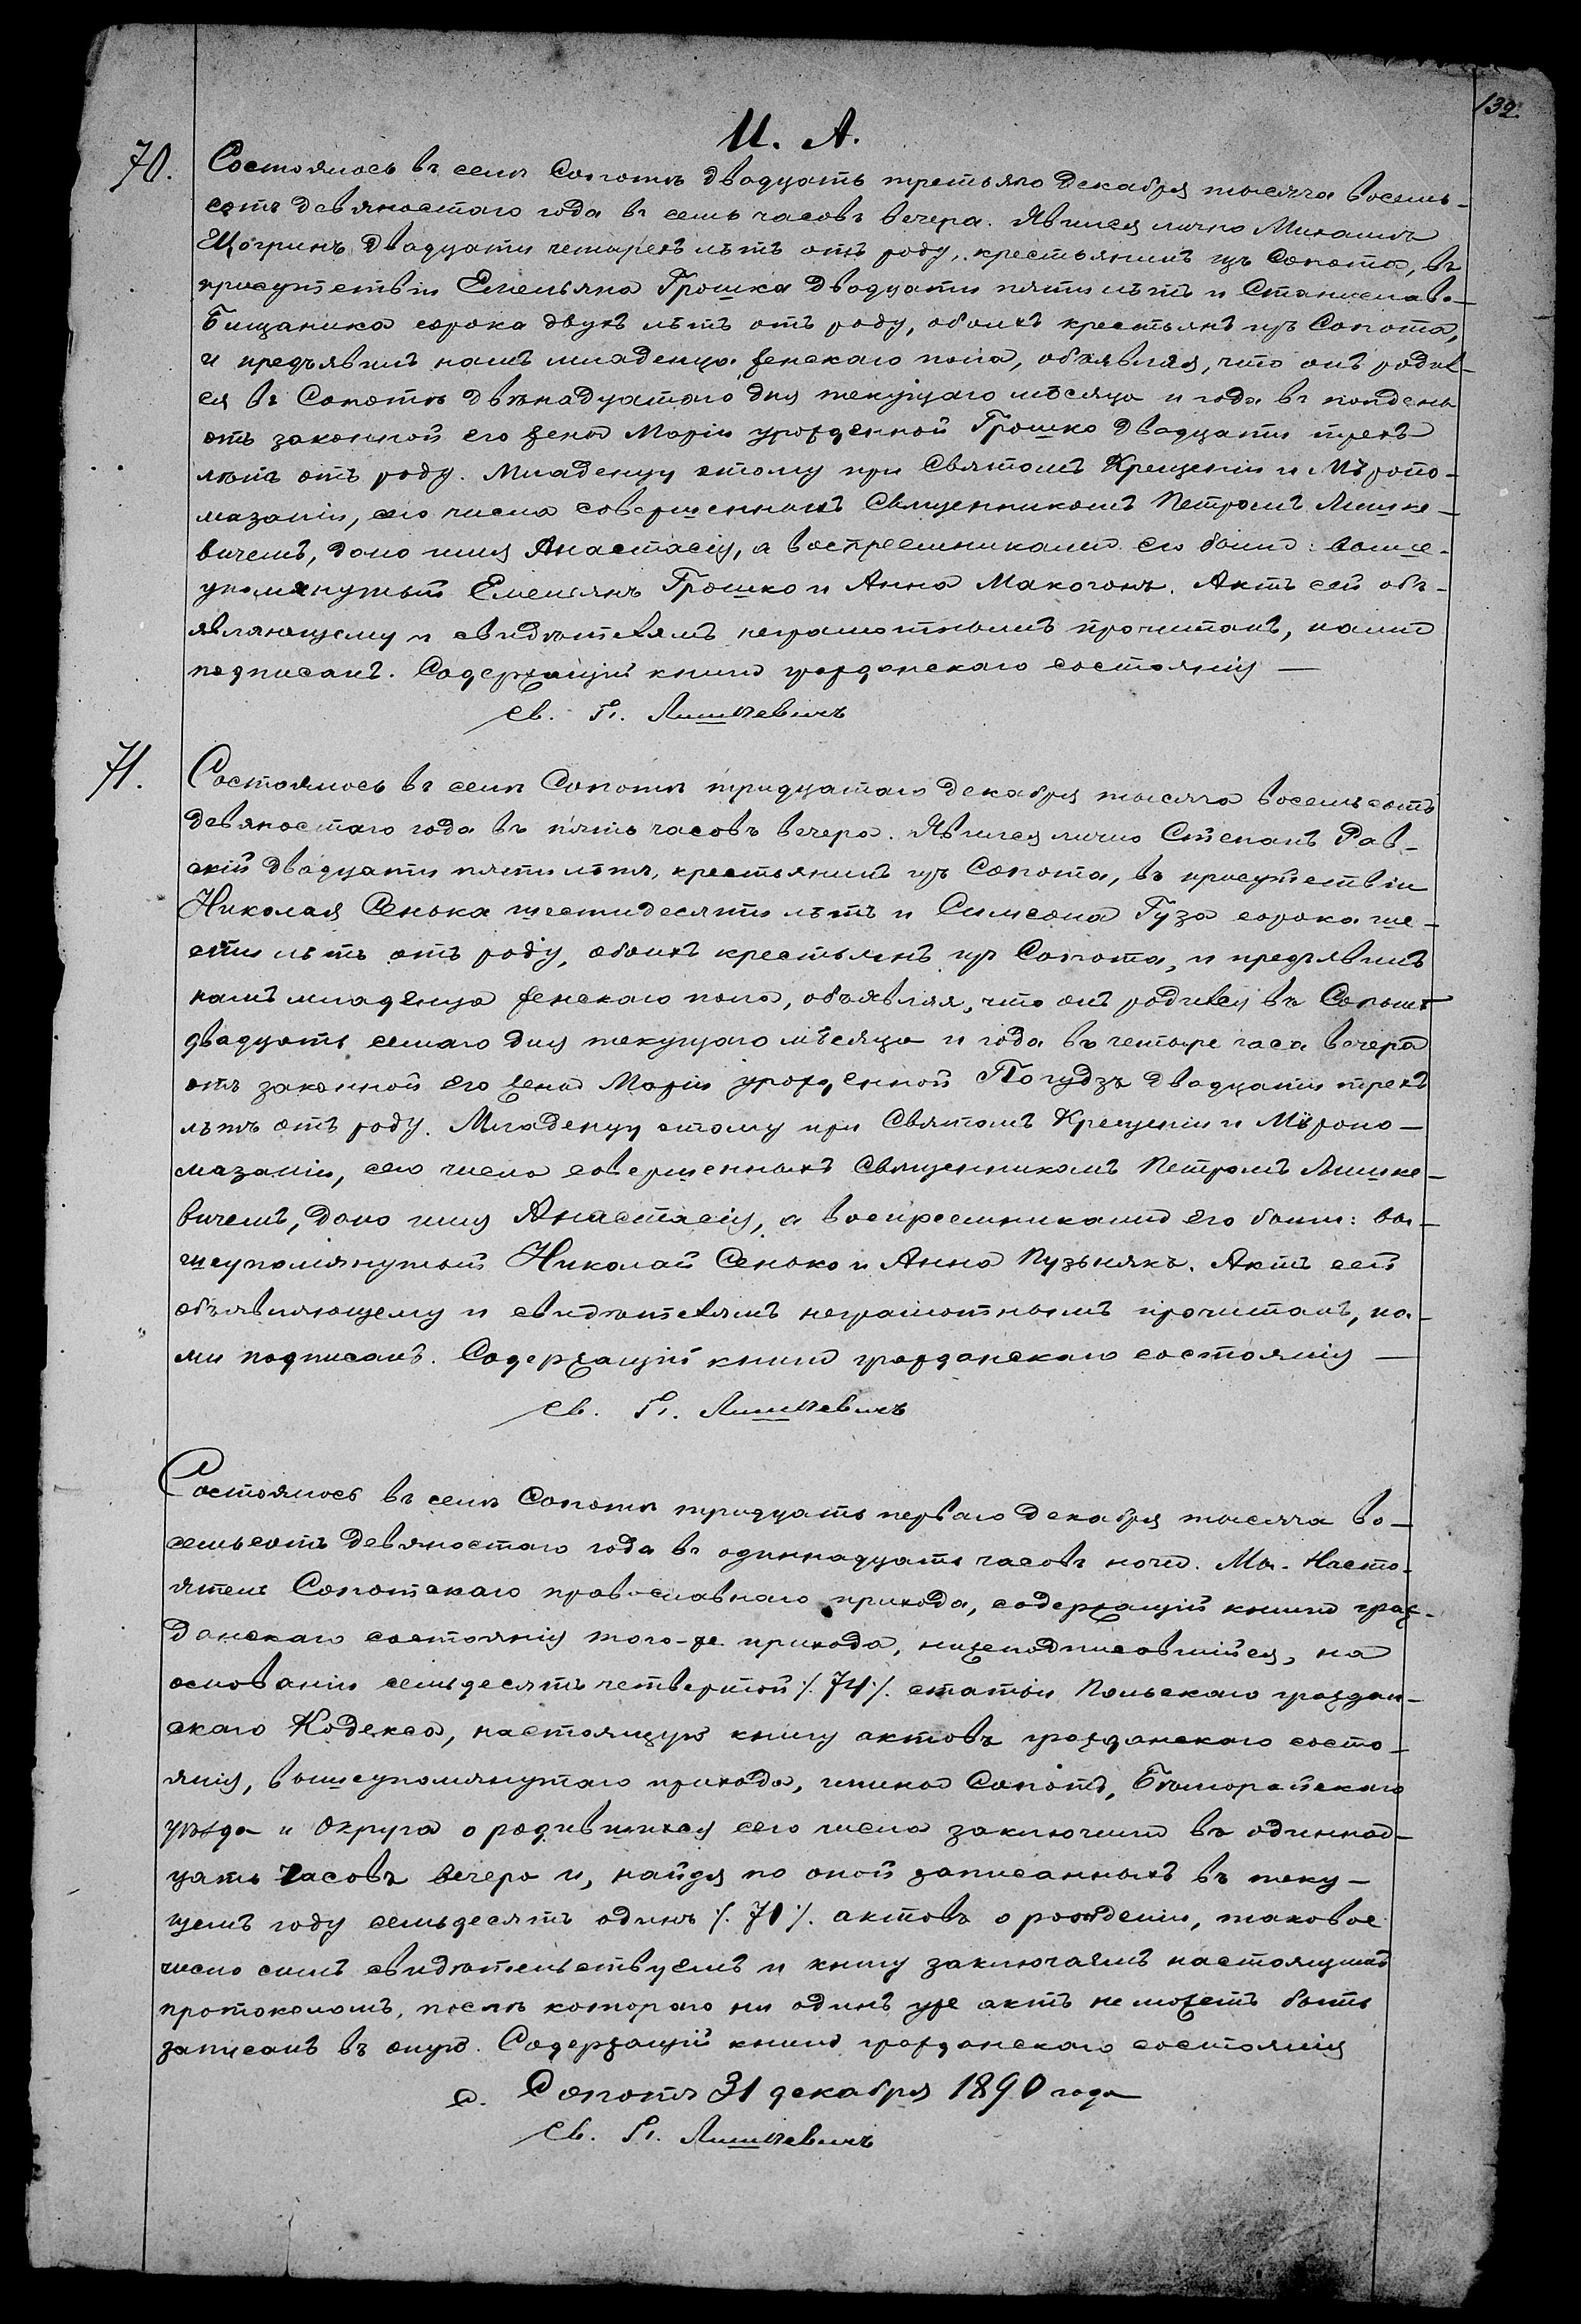 132.
И. А.
70. Состоялось въ селѣ Сопотѣ двадцать третьяго Декабря тысяча восемь-
сотъ девяностаго года въ семь часовъ вечера. Явился лично Михаилъ
двадцати четырехъ лѣтъ отъ роду, крестьянинъ изъ Сопота, въ
присутствіи Емельяна Грошка двадцати пяти лѣтъ и Станислава
Бищаника сорока двухъ лѣтъ отъ роду, обоихъ крестьянъ изъ Сопота,
и предъявилъ намъ младенца женскаго пола, объявляя, что онъ родил-
ся въ Сопотѣ двѣнадцатаго дня текущаго мѣсяца и года въ полдень
отъ законной его жены Маріи урожденной Грошко двадцати трехъ
лѣтъ отъ роду. Младенцу этому при Святомъ Крещеніи и Мѵропо-
мазаніи, сего числа совершенныхъ Священникомъ Петромъ Лишке-
вичемъ, дано имя Анастасія, а воспреемниками его были: выше-
упомянутый Емельянъ Грошко и Анна Макогонъ. Актъ сей объ-
являющему и свидѣтелямъ неграмотнымъ прочитанъ, нами
подписанъ. Содержащій книги гражданскаго состоянія —
Св. П. Лишкевичъ
71. Состоялось въ селѣ Сопотѣ тридцатаго Декабря тысяча восемьсотъ
девяностаго года въ пять часовъ вечера. Явился лично Степанъ Рав-
скій двадцати пяти лѣтъ, крестьянинъ изъ Сопота, въ присутствіи
Николая Сенька шестидесяти лѣтъ и Симеона Гуза сорока ше-
сти лѣтъ отъ роду, обоихъ крестьянъ изъ Сопота, и предъявилъ
намъ младенца женскаго пола, объявляя, что онъ родился въ Сопотѣ
двадцать семаго дня текущаго мѣсяца и года въ четыре часа вечера
отъ законной его жены Маріи урожденной Погудзъ двадцати трехъ
лѣтъ отъ роду. Младенцу этому при Святомъ Крещеніи и Мѵропо-
мазаніи, сего числа совершенныхъ Священникомъ Петромъ Лишке-
вичемъ, дано имя Анастасія, а воспреемниками его были: вы-
шеупомянутый Николай Сенько и Анна Пузьнякъ. Актъ сей
объявляющему и свидѣтелямъ неграмотнымъ прочитанъ, на-
ми подписанъ. Содержащій книги гражданскаго состоянія —
Св. П. Лишкевичъ
Состоялось въ селѣ Сопотѣ тридцать перваго Декабря тысяча во-
семьсотъ девяностаго года въ одиннадцать часовъ ночи. Мы Насто-
ятель Сопотскаго православнаго прихода, содержащій книги граж-
данскаго состоянія того-же прихода, нижеподписавшійся, на
основаніи семьдесятъ четвертой /. 74 /. статьи Польскаго граждан-
скаго Кодекса, настоящую книгу актовъ гражданскаго состо-
янія, вышеупомянутаго прихода, гмина Сопотъ, Бѣлгорайскаго
уѣзда и Округа о родившихся сего числа заключили въ одиннад-
цать часовъ вечера и, найдя по оной записанныхъ въ теку-
щемъ году семьдесятъ одинъ /. 71 /. актовъ о рожденіи, таковое
число симъ свидѣтельствуемъ и книгу заключаемъ настоящимъ
протоколомъ, послѣ котораго ни одинъ уже актъ не можетъ быть
записанъ въ оную. Содержащій книги гражданскаго состоянія
с. Сопотъ 31 декабря 1890 года
Св. П. Лишкевичъ